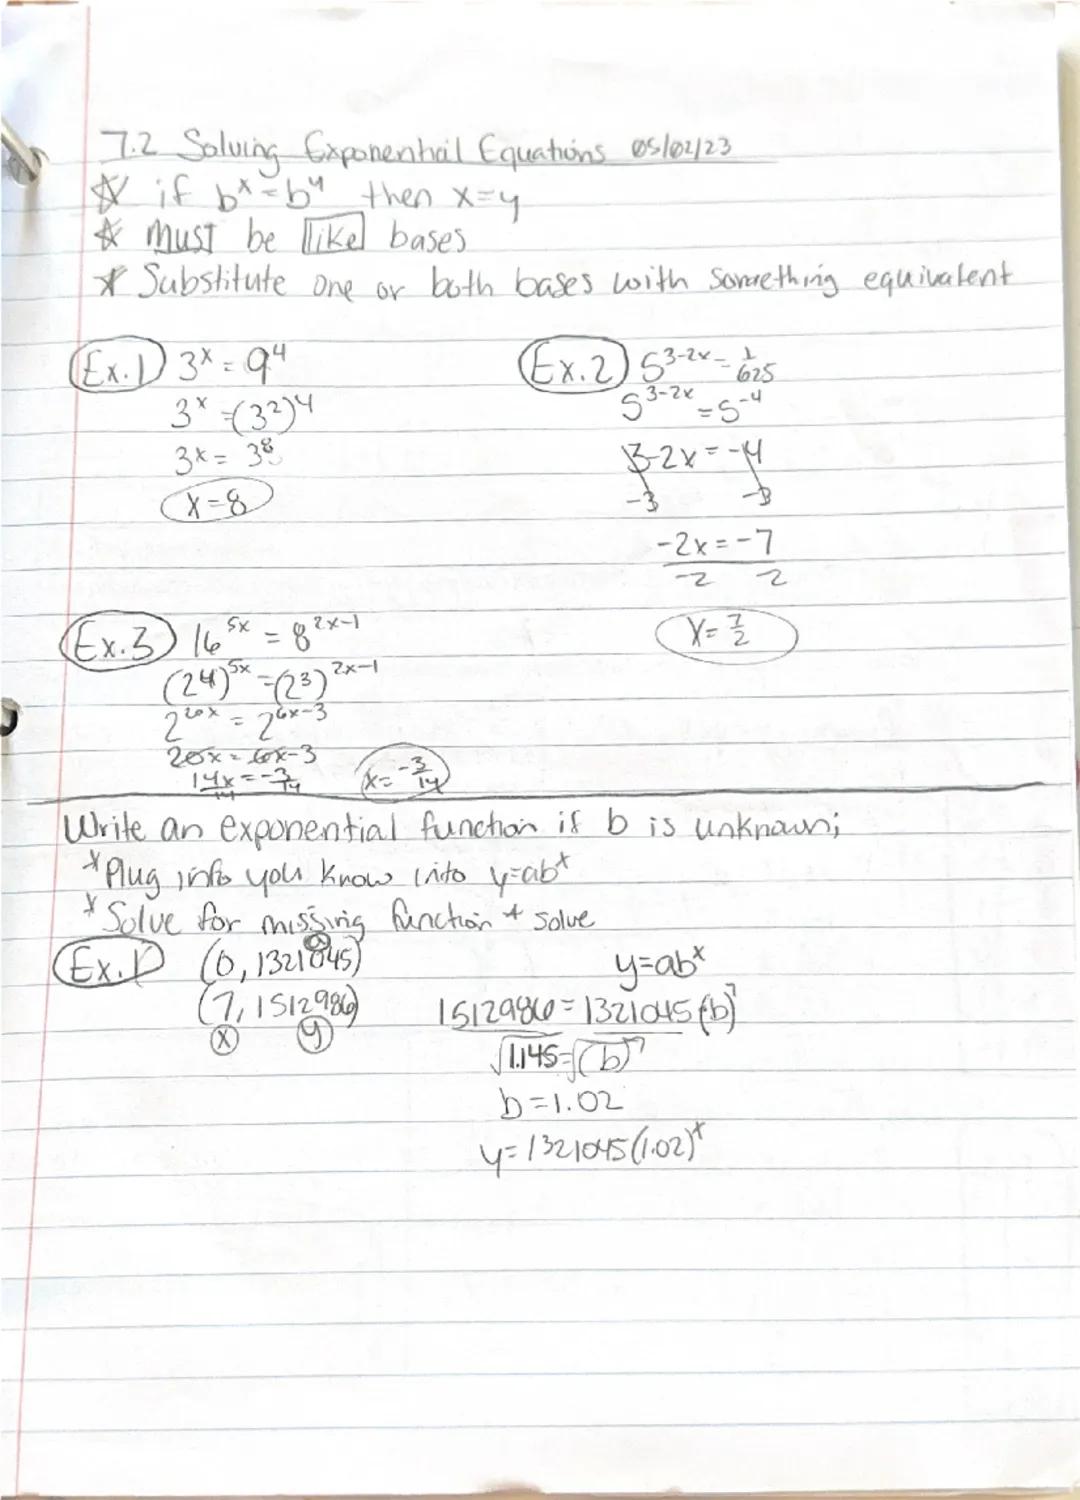 7.2 Solving Exponential Equations 05/02/23
☆ if b^x = b^y then x=y
☆ MUST be like bases
* Substitute one or both bases with something equivalent
Ex.1 3^x = 9^4
3^x = (3^2)^4
3^x = 3^8
x=8
Ex.2 5^3-2x = 1/625
5^3-2x = 5^-4
3-2x = -4
-3 -3
-2x = -7
-2 -2
x = 7/2
Ex.3 16^5x = 8^2x-1
(2^4)^5x = (2^3)^2x-1
2^20x = 2^6x-3
20x = 6x-3
14x = -3
14 14
x = -3/14
Write an exponential function if b is unknown;
* Plug info you know into y=ab^x
* Solve for missing function + solve
Ex.1 (0, 1321045)
a
(7, 1512986)
x y
y=ab^x
1512986 = 1321045 (b)^7
√1.145 = √(b)^7
b = 1.02
y = 1321045 (1.02)^x